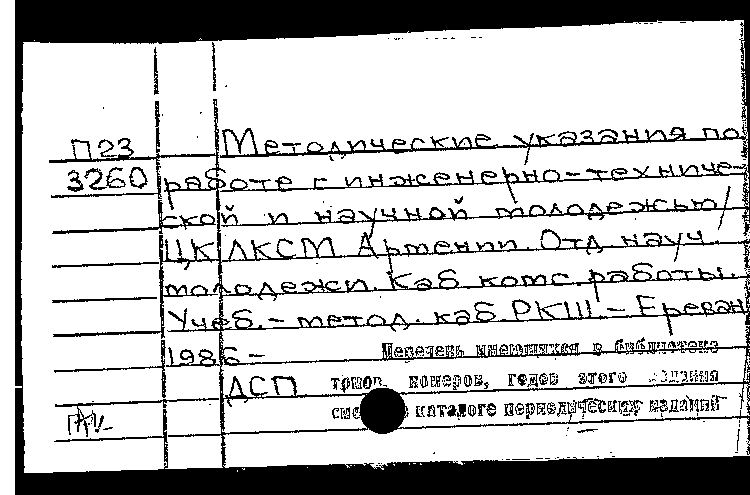 П23 Методические указания по
3260 работе с инженерно-техниче-
ской и научной молодежью/
ЦК ЛКСМ Армении. Отд науч.
молодежи. Каб комс. работы.
Учеб.- метод. каб. РКШ.- Ереван
1986-
Перечень имеющихся в библиотеке
ДСП томов, номеров, годов этого издания
см. в каталоге периодических изданий